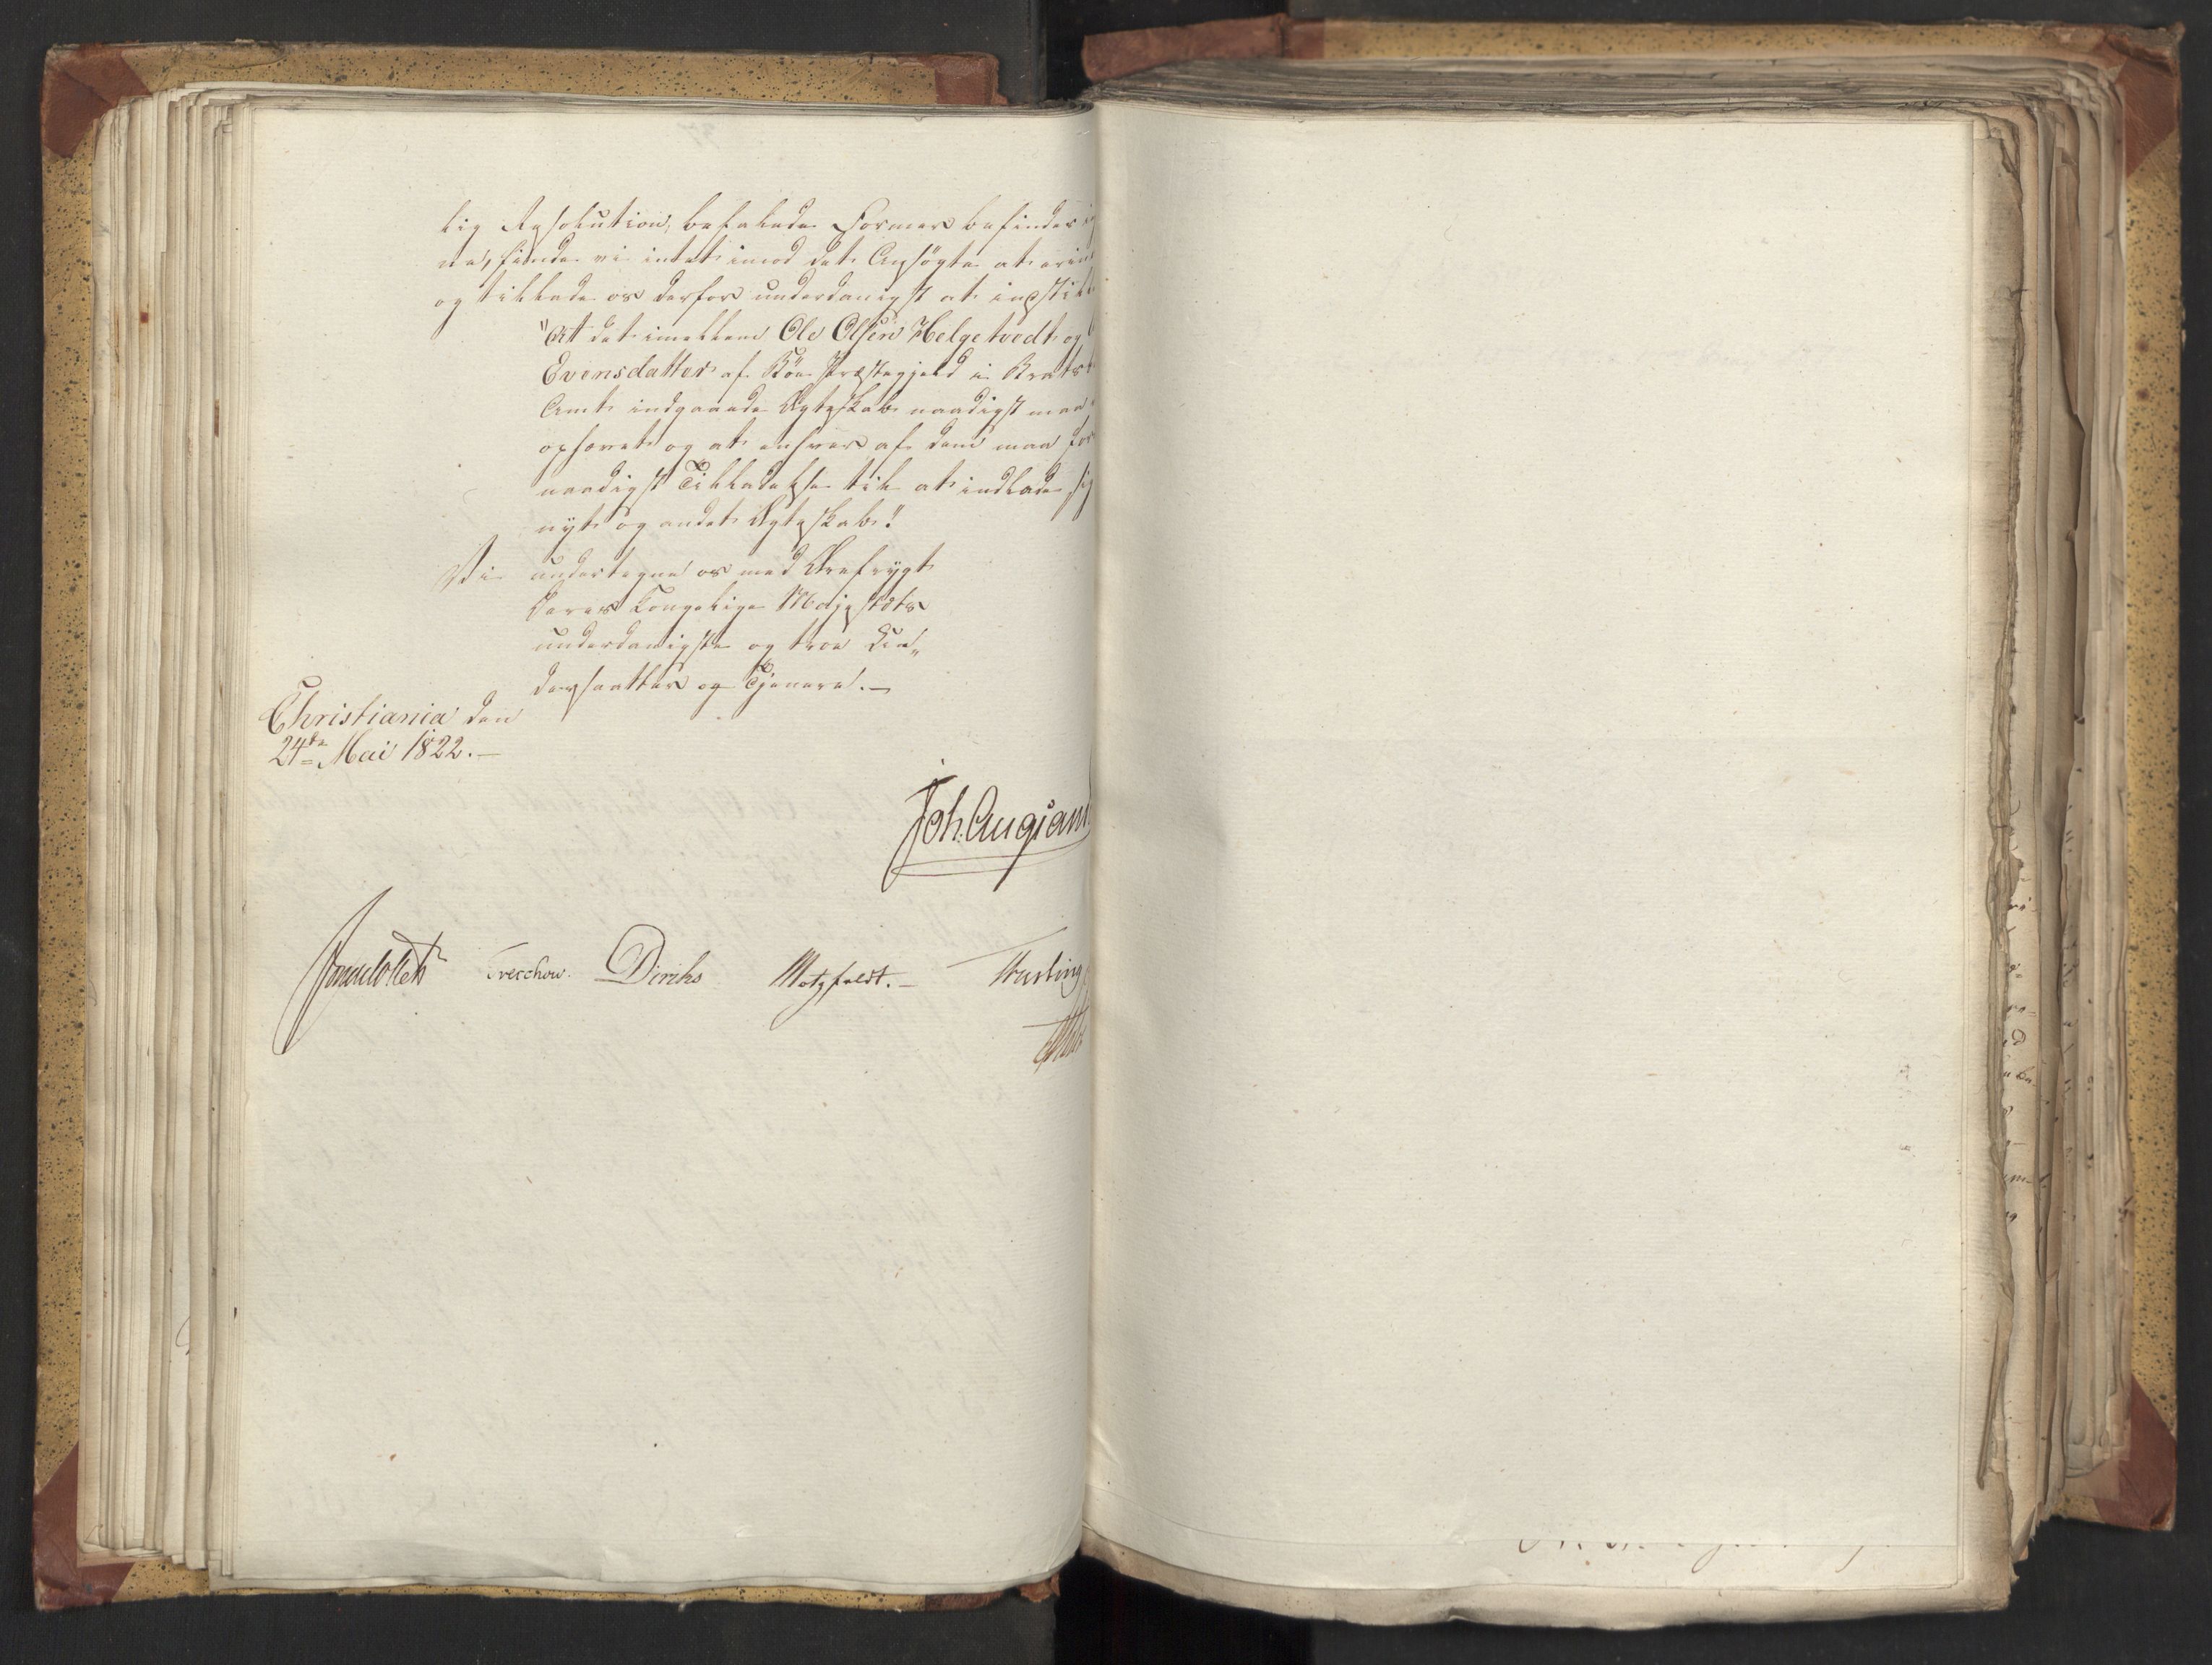 lig Resolution, befalede Former befinder
ne, finde vi intet imod det Ansøgte at erin
og tillade os derfor underdanigst at indstil
"At det imellem Ole Olsen Helgetvedt og
Evensdatter af Böe Præstegjeld i Brats
Amt indgaaede Ægteskab naadigst maa
ophævet og at enhver af dem maa for
naadigst Tilladelse til at indlade sig
nyt og andet Ægteskab."
Vi undertegne os med Ærefrygt
Deres Kongelige Majestæts
underdanigste og troe Un„
dersaatter og Tjenere.—
Christiania den
24de Mai 1822.—
Joh. Aug: Sand
Sommerfeldt Treschow. Diriks Motzfeldt.—